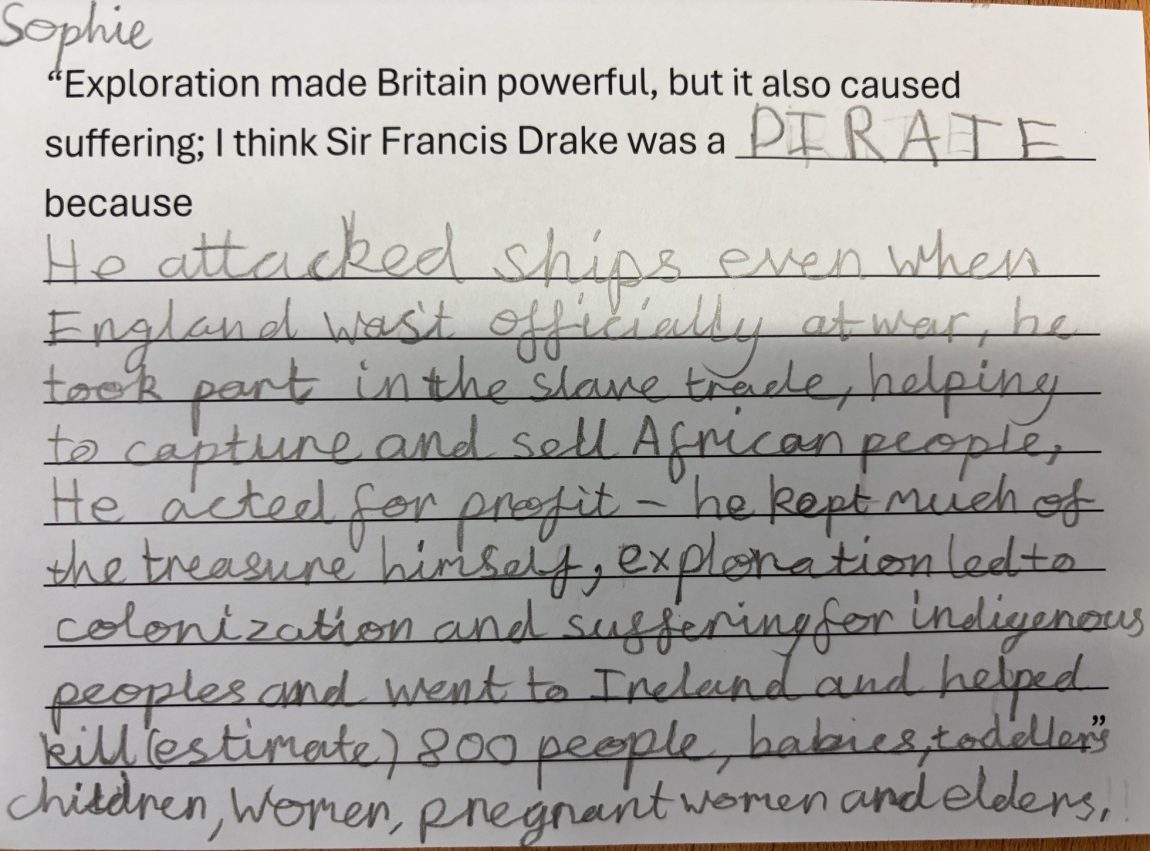 Sophie
“Exploration made Britain powerful, but it also caused
suffering; I think Sir Francis Drake was a PIRATE
because
He attacked ships even when
England was't officially at war, he
took part in the slave trade, helping
to capture and sell African people,
He acted for profit - he kept much of
the treasure himself, exploration led to
colonization and suffering for indigenous
peoples and went to Ireland and helped
kill (estimate) 800 people, babies, toddlers”
children, women, pregnant women and elders,